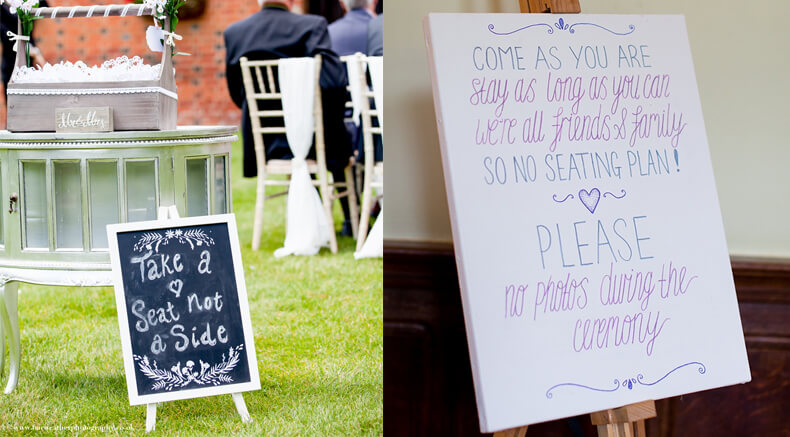 Mr & Mrs
Take a
Seat not
a Side
COME AS YOU ARE
Stay as long as you can
we're all friends & family
SO NO SEATING PLAN!
PLEASE
no photos during the
ceremony